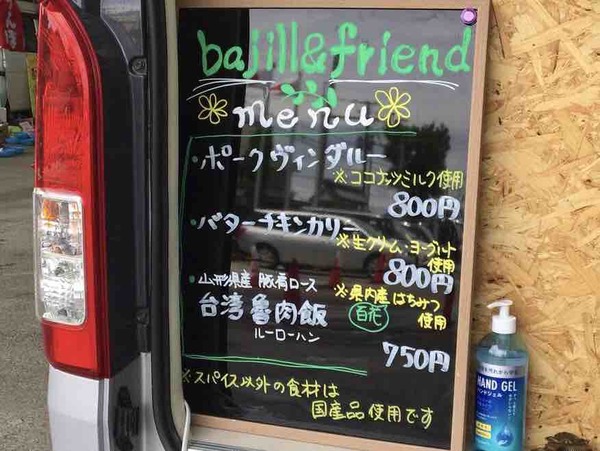 bajill&friend
menu
・ポークヴィンダルー
※ココナッツミルク使用
800円
・バターチキンカリー
※生クリーム・ヨーグルト
使用
800円
・山形県産 豚肩ロース
台湾魯肉飯
ルーローハン
※県内産はちみつ
百花
使用
750円
※スパイス以外の食材は
国産品使用です
HAND GEL
ハンドジェル